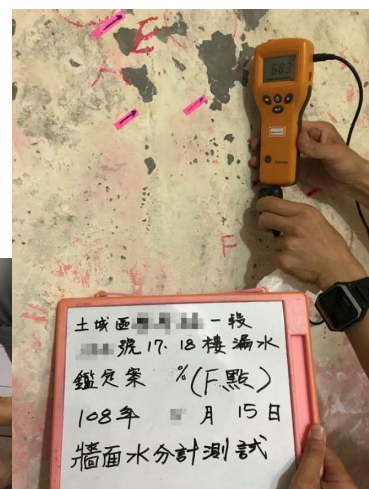 E
68.3
F
土城區 一段
號17.18樓漏水
鑑定案 %(F點)
108年 月 15日
牆面水分計測試